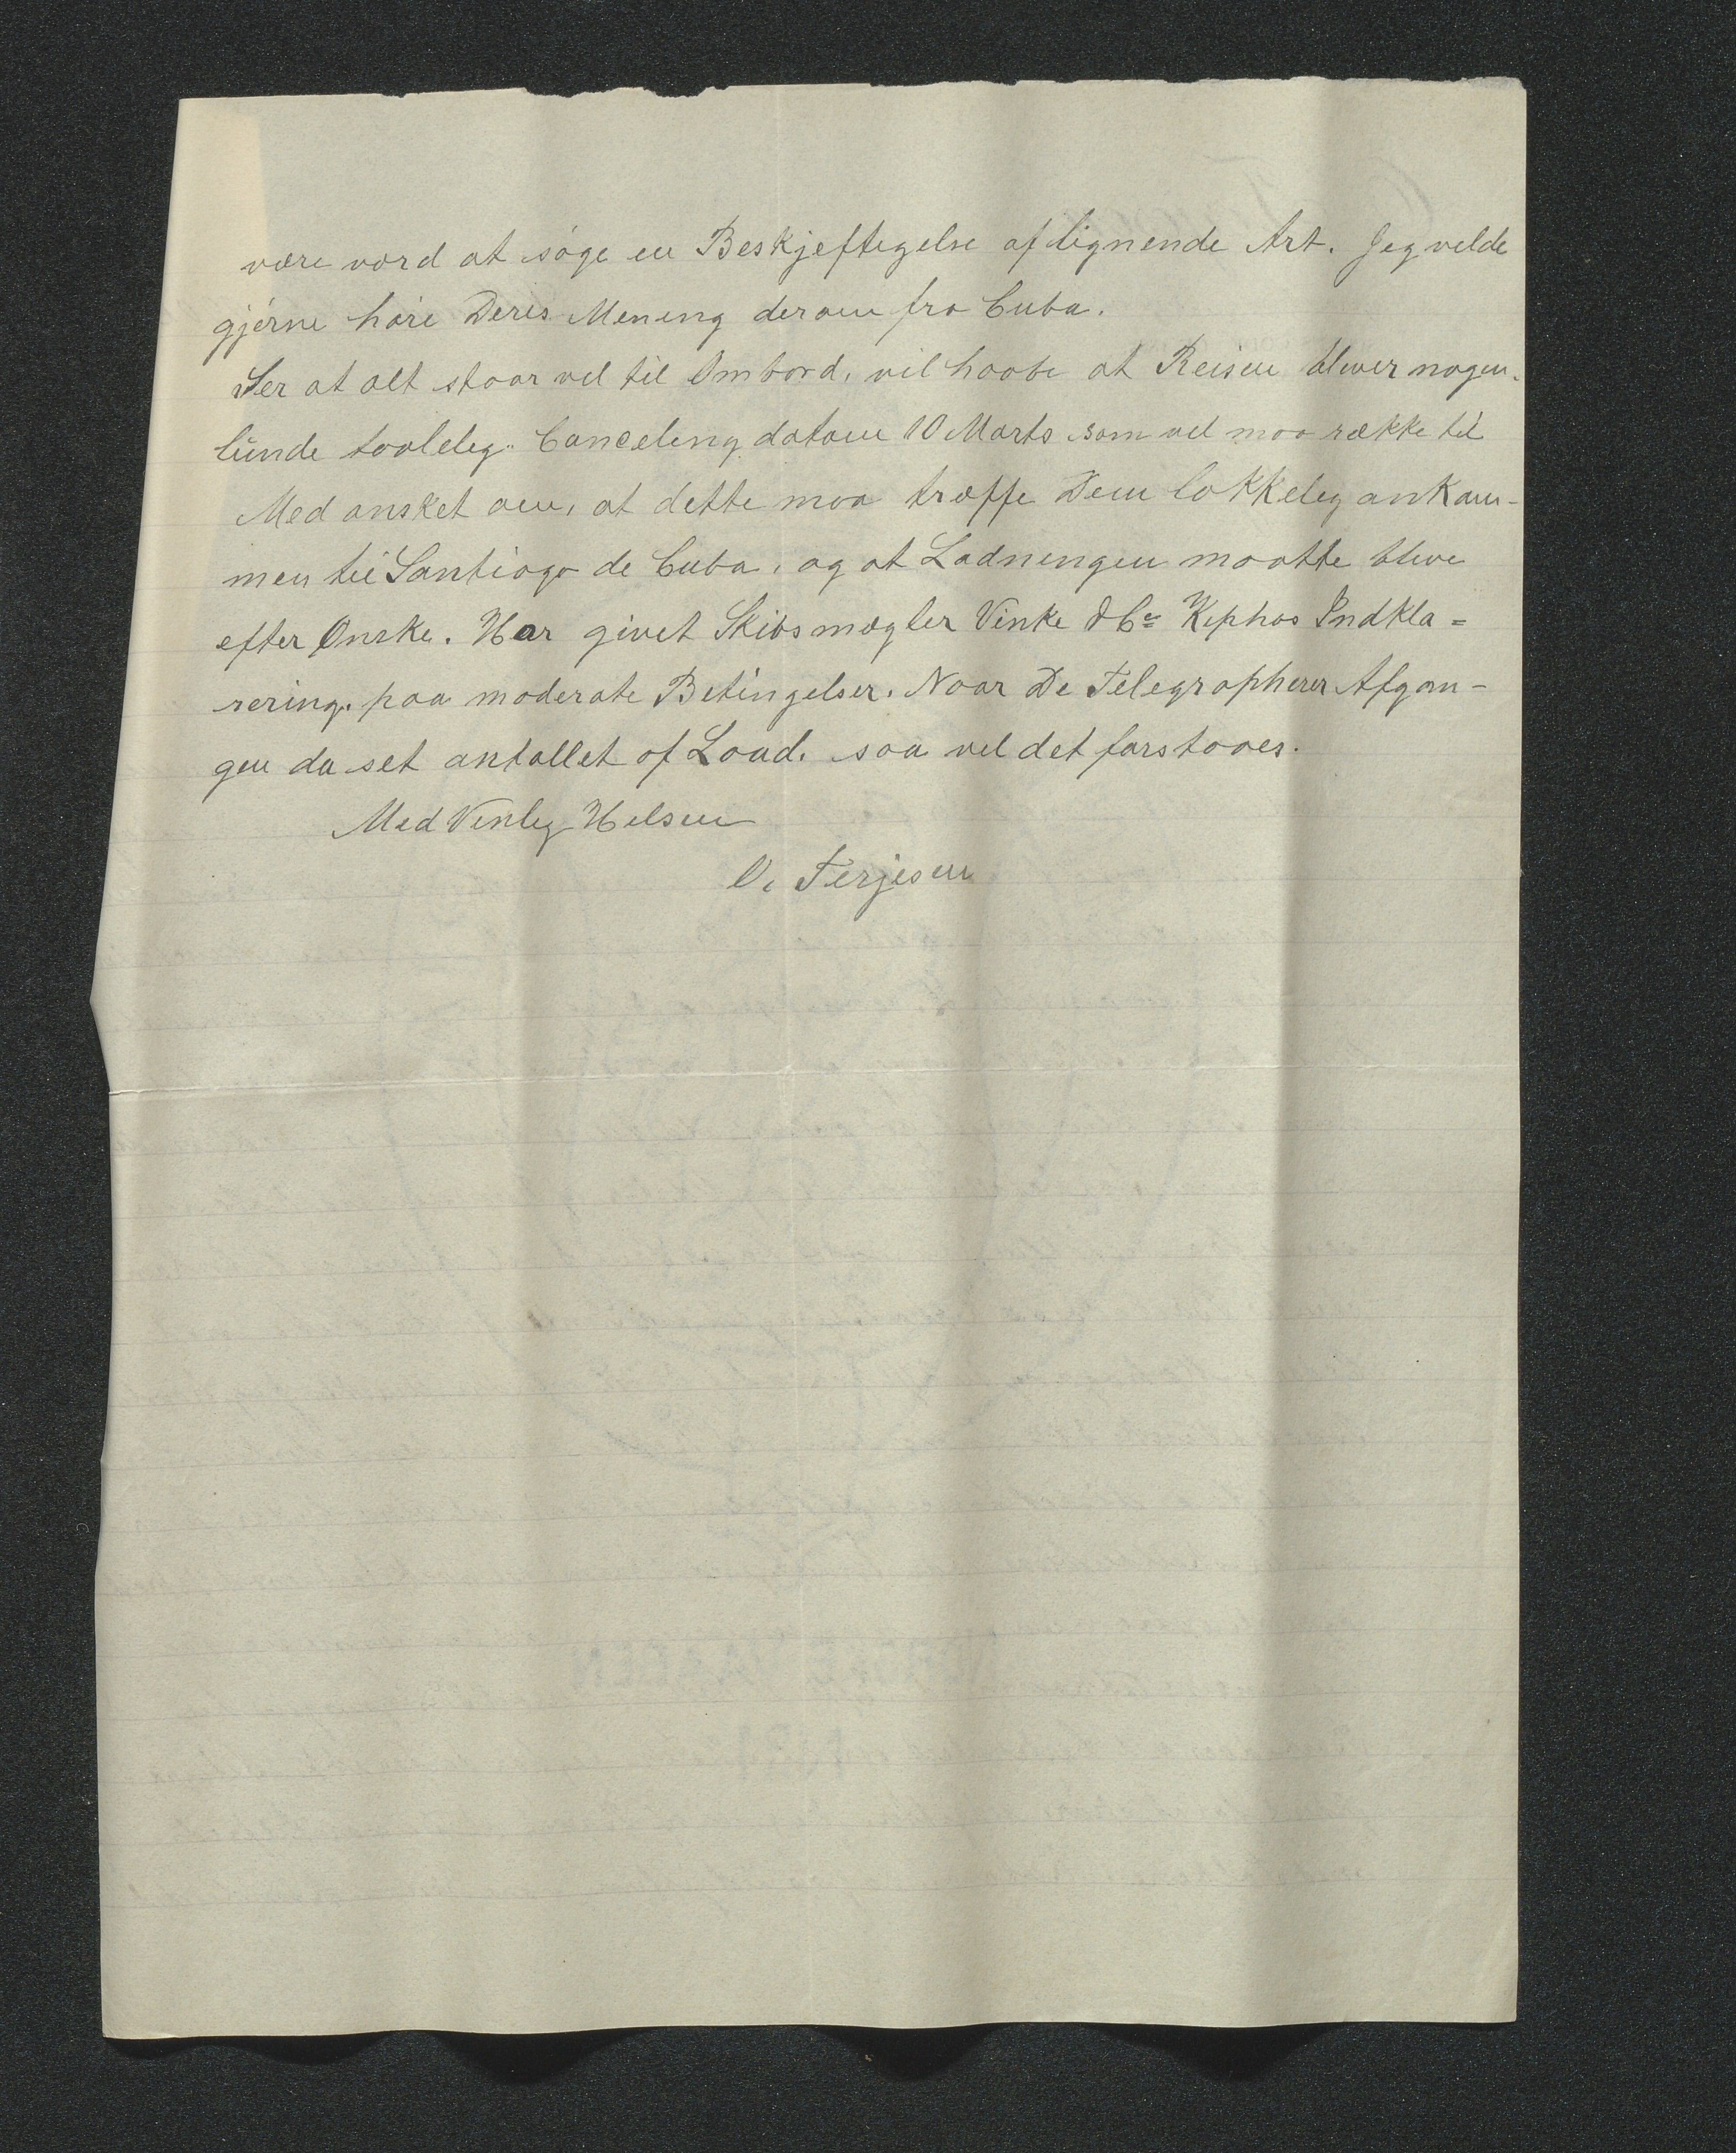 være værd at søge en Beskjeftigelse af lignende Art. Jeg vilde
gjerne høre Deres Mening derom fra Cuba.
Ser at alt staar vel til Ombord, vil haabe at Reisen bliver nogen-
lunde taalelig. Canceling datoen 10 Marts som vel maa række til
Med ønsket om, at dette maa træffe Dem lykkelig ankom-
men til Santiago de Cuba, og at Ladningen maatte blive
efter Ønske. Har givet Skibsmægler Vinke & Co Kephos Indkla=
rering. paa moderate Betingelser. Naar De Telegrapherer Afgan-
gen da set antallet af Load. saa vel det forstaaes.
Med Venlig Hilsen
O. Terjesen